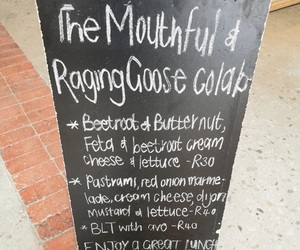 The Mouthful &
Raging Goose colab
* Beetroot & Butternut,
Feta & beetroot cream
cheese & lettuce -R30
* Pastrami, red onion marme-
lade, cream cheese, dijon
mustard & lettuce -R40
* BLT with avo -R40
ENJOY A GREAT LUNCH